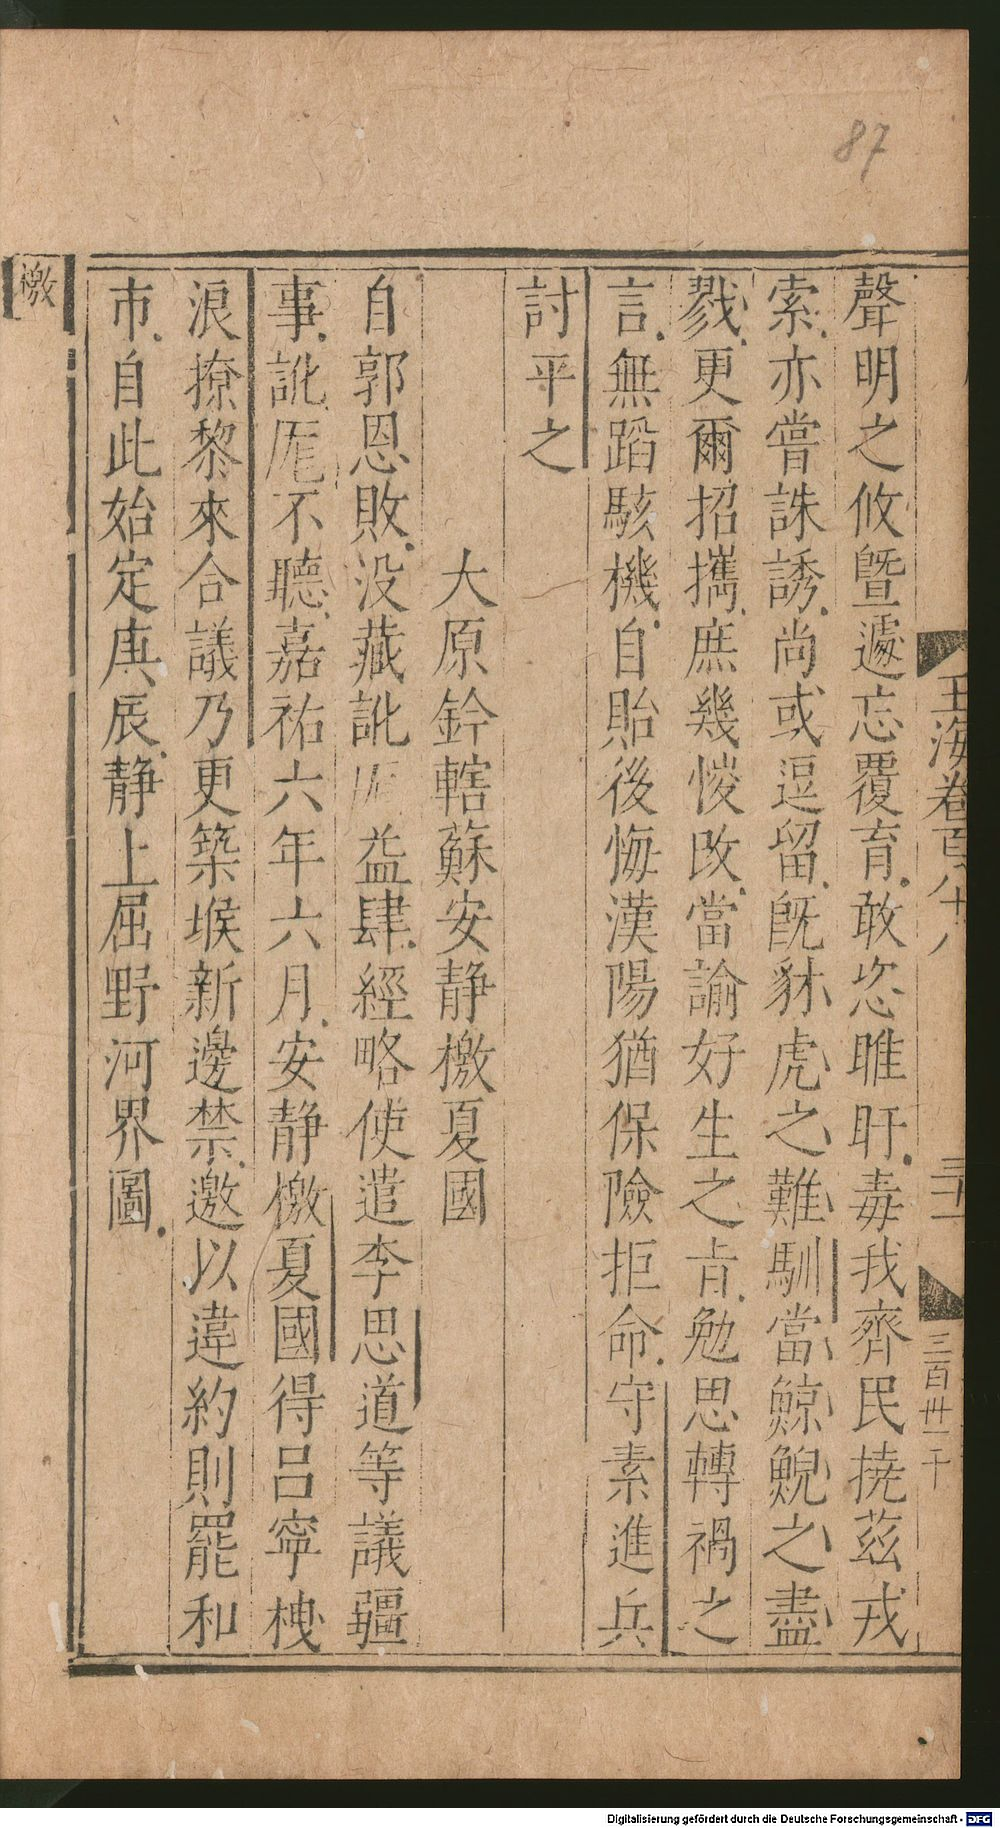 87
聲明之攸曁遽忘覆育敢恣睢盱毒我齊民撓茲戎
索亦嘗誅誘尚或逗留旣豺虎之難馴當鯨鯢之盡
戮更爾招攜庶幾悛改當諭好生之㫖勉思轉禍之
言無蹈駭機自貽後悔漢陽猶保險拒命守素進兵
討平之
大原鈐轄蘇安静檄夏國
自郭恩敗没藏訛厖益肆經略使遣李思道等議疆
事訛厖不聽嘉祐六年六月安静檄夏國得呂寧栧
浪撩黎來合議乃更築堠新邊禁邀以違約則罷和
市自此始定庚辰静上屈野河界圖
檄
玉海卷百八十八
三十一
三百卅一千
Digitalisierung gefördert durch die Deutsche Forschungsgemeinschaft - DFG